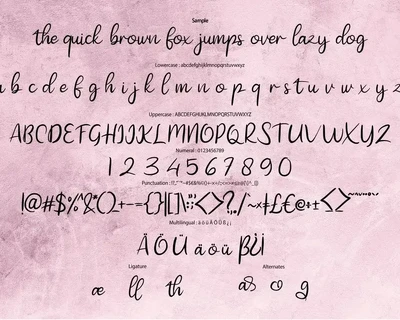 Sample
the quick brown fox jumps over lazy dog
Lowercase : abcdefghijklmnopqrstuvwxyz
a b c d e f g h i j k l l m n o p q r s t u v w x y z
Uppercase : ABCDEFGHIJKLMNOPQRSTUVWXYZ
ABCDEFGHIJKLMNOPQRSTUVWXYZ
Numeral : 0123456789
1234567890
Punctuation :
!@#$%^&*()_+-={}|[]\:;<>?,./~×‡£€@±±≤≥
Multilingual : ä ö ü Ä Ö Ü ß
Ä Ö Ü ä ö ü
Ligature
Alternates
æ ll th
as c o g